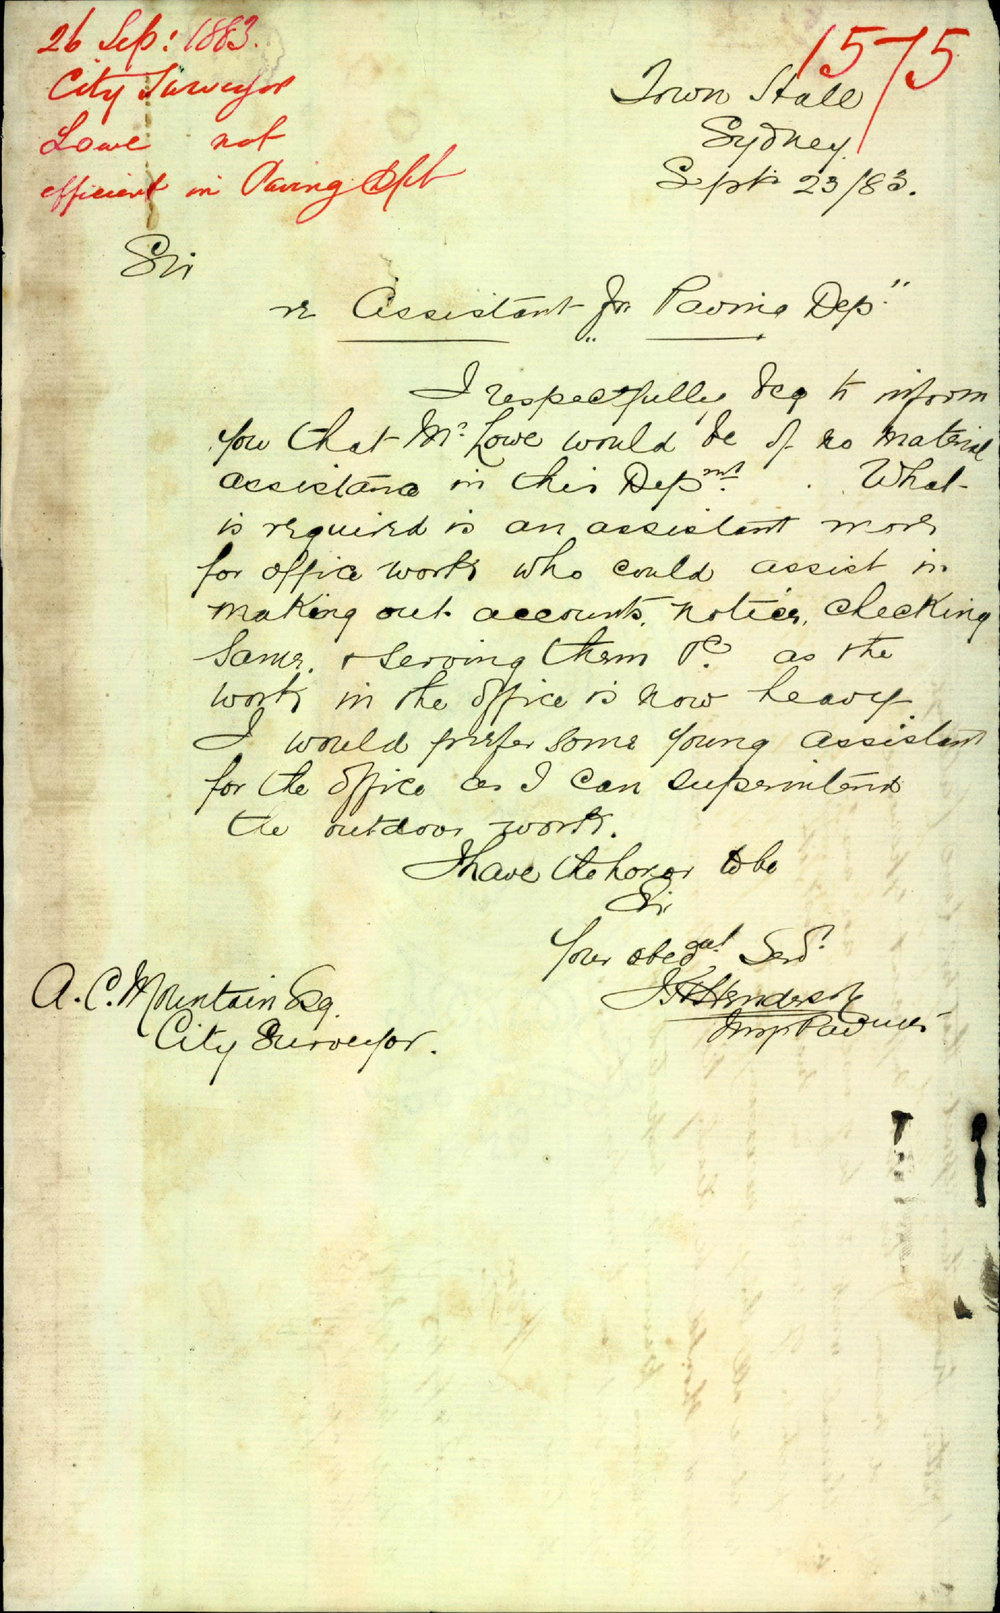 26 Sep: 1883.
City Surveyor
Lowe not
efficient in Paving Dpt
1575
Town Hall
Sydney
Sept 23/83.
Sir
re Assistant for Paving Dep.t
I respectfully beg to inform
you that Mr Lowe would be of no material
assistance in this Depmt. What
is required is an assistant more
for office work who could assist in
making out accounts, notices, checking
same, & serving them &c as the
work in the office is now heavy.
I would prefer some young assistant
for the office as I can superintend
the outdoor work.
I have the honor to be
Sir
Your obedent Servt
Henderson
A. C. Mountain Esq.
City Surveyor.